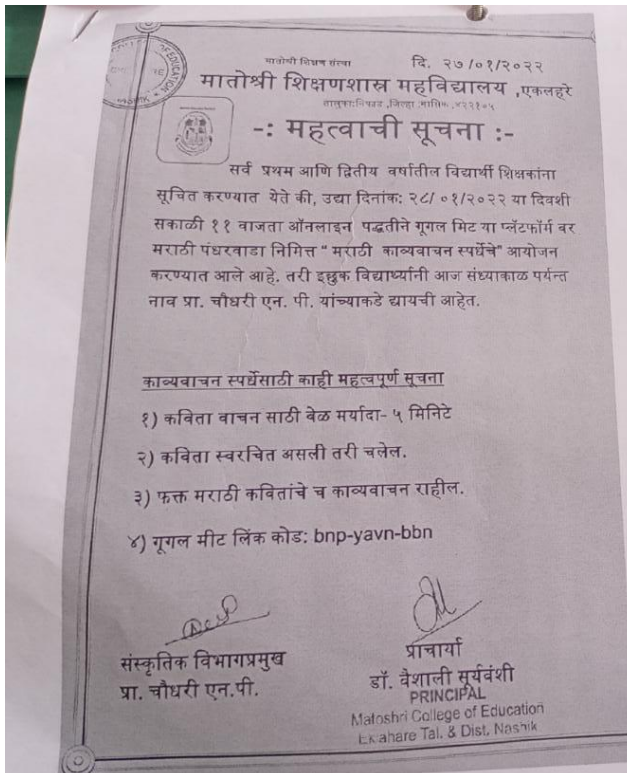 मातोश्री शिक्षण संस्था
दि. २७/०१/२०२२
मातोश्री शिक्षणशास्त्र महविद्यालय ,एकलहरे
-: महत्वाची सूचना :-
सर्व प्रथम आणि द्वितीय वर्षातील विद्यार्थी शिक्षकांना
सूचित करण्यात येते की, उद्या दिनांक: २८/ ०१/२०२२ या दिवशी
सकाळी ११ वाजता ऑनलाइन पद्धतीने गूगल मिट या प्लॅटफॉर्म वर
मराठी पंधरवाडा निमित्त “ मराठी काव्यवाचन स्पर्धेचे” आयोजन
करण्यात आले आहे. तरी इछुक विद्यार्थ्यांनी आज संध्याकाळ पर्यन्त
नाव प्रा. चौधरी एन. पी. यांच्याकडे द्यायची आहेत.
काव्यवाचन स्पर्धेसाठी काही महत्वपूर्ण सूचना
१) कविता वाचन साठी वेळ मर्यादा- ५ मिनिटे
२) कविता स्वरचित असली तरी चलेल.
३) फक्त मराठी कवितांचे च काव्यवाचन राहील.
४) गूगल मीट लिंक कोड: bnp-yavn-bbn
संस्कृतिक विभागप्रमुख
प्रा. चौधरी एन.पी.
प्राचार्या
डॉ. वैशाली सुर्यवंशी
PRINCIPAL
Matoshri College of Education
Eklahare Tal. & Dist. Nashik